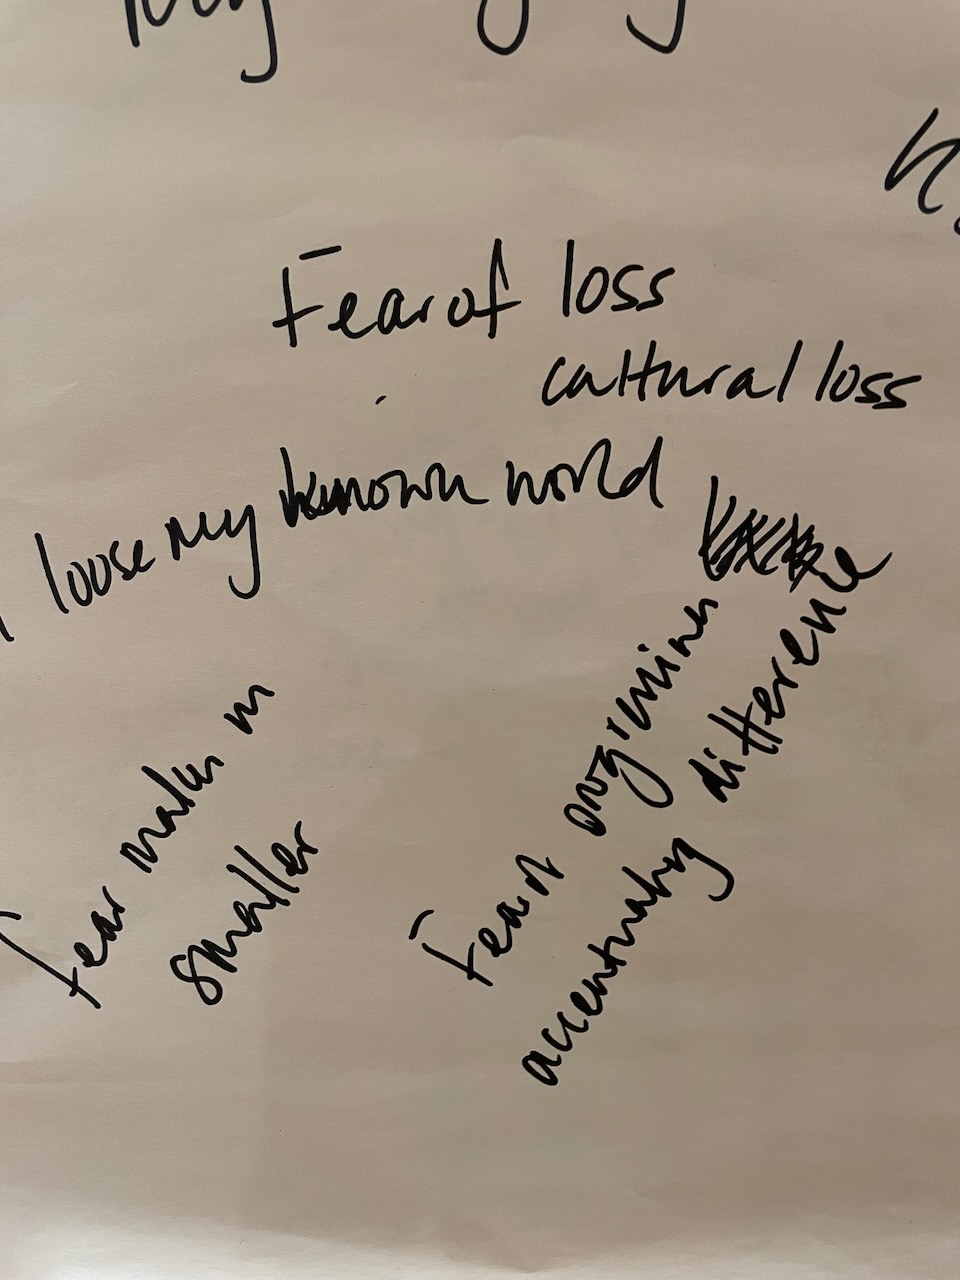 Fear of loss
cultural loss
loose my known world
Fear makes
smaller
Fear of
accentuating difference